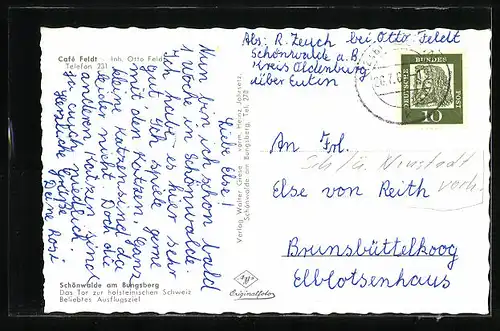 Café Feldt - Inh. Otto Feldt
Telefon 231
Liebe Else!
Nun bin ich schon bald
1 Woche in Schönwalde.
Ich habe es hier sehr
gut. Ich spiele gerne
mit den Katzen. Ganz
kleine Katzen sind da
leider nicht. Doch die
anderen Katzen sind
so auch niedlich
Herzliche Grüße
Deine Rosi
Schönwalde am Bungsberg
Das Tor zur holsteinischen Schweiz
Beliebtes Ausflugsziel
Verlag Walter Giese vorm. Heinz
Schönwalde am Bungsberg, Tel. 270
Originalfoto
Abs: R. Zeuch bei Otto Feldt
Schönwalde a.B.
Kreis Oldenburg
über Eutin
DEUTSCHE BUNDES POST
10
An Frl.
Neustadt
Else von Reith
Brunsbüttelkoog
Elblotsenhaus